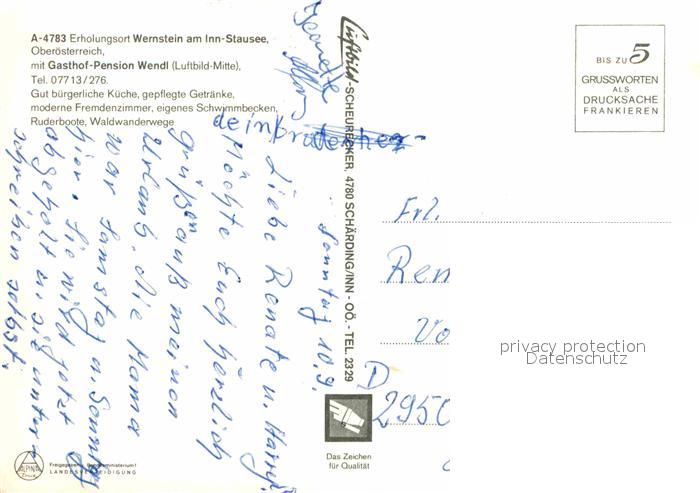 A-4783 Erholungsort Wernstein am Inn-Stausee,
Oberösterreich,
mit Gasthof-Pension Wendl (Luftbild-Mitte),
Tel. 07713/276.
Gut bürgerliche Küche, gepflegte Getränke,
moderne Fremdenzimmer, eigenes Schwimmbecken,
Ruderboote, Waldwanderwege
Luftbild-SCHEURECKER, 4780 SCHÄRDING/INN - OÖ. - TEL. 2329
BIS ZU 5
GRUSSWORTEN
ALS
DRUCKSACHE
FRANKIEREN
Sonntag 10.9.
Liebe Renate u. Harry!
Möchte Euch herzlich
grüßen auß meinen
Urlaub, die Mama
war Samstag u. Sonntag
hier. Sie wird jetzt
abgeholt u. sie untern
schreiben selbst.
dein bruder
Frl.
Ren
Vo
D
2950
privacy protection
Datenschutz
Das Zeichen
für Qualität
ALPINA
Druck
Freigegeben Bundesministerium f.
LANDESVERTEIDIGUNG